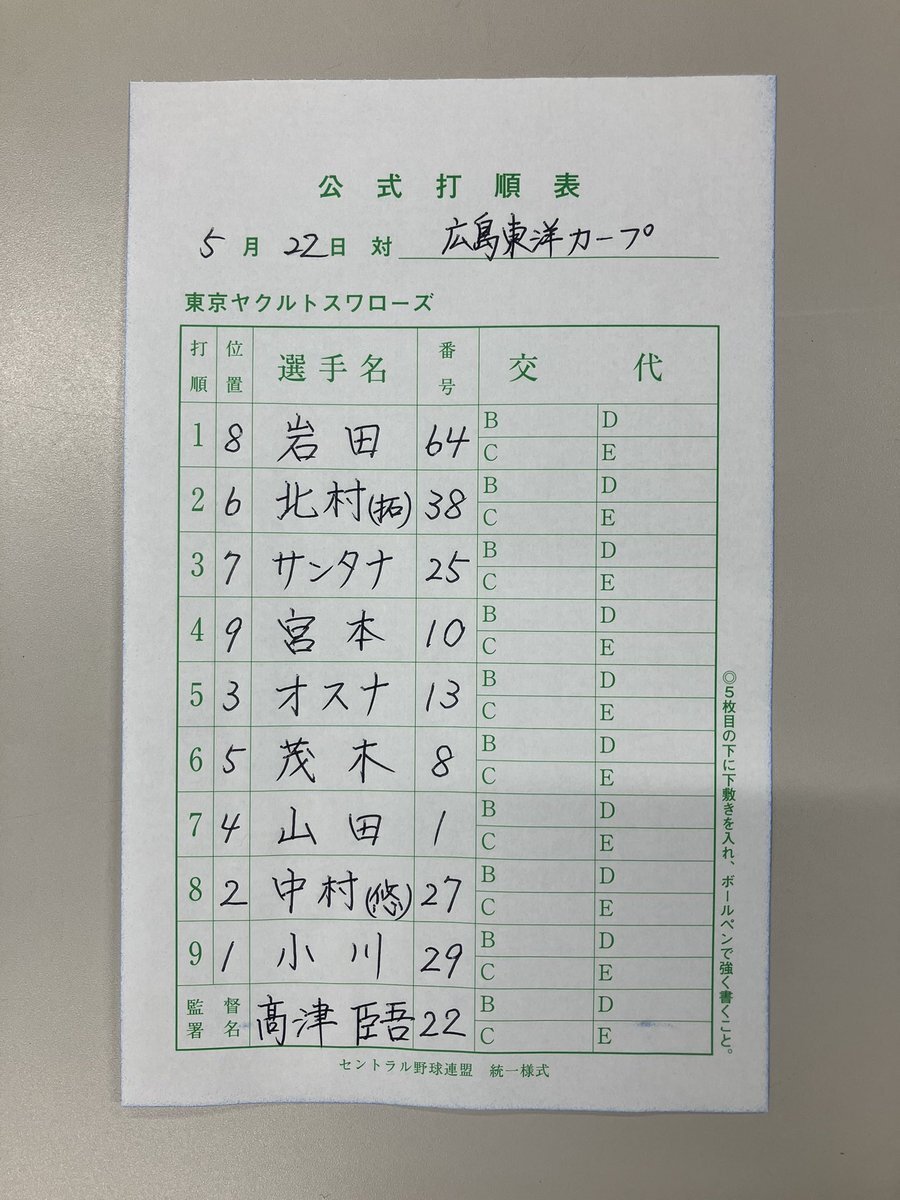 公式打順表
5月22日 対 広島東洋カープ
東京ヤクルトスワローズ
打順 位置 選手名 番号 交代
1 8 岩田 64 B D
C E
2 6 北村(拓) 38 B D
C E
3 7 サンタナ 25 B D
C E
4 9 宮本 10 B D
C E
5 3 オスナ 13 B D
C E
6 5 茂木 8 B D
C E
7 4 山田 1 B D
C E
8 2 中村(悠) 27 B D
C E
9 1 小川 29 B D
C E
監督署名 髙津 臣吾 22 B D
C E
セントラル野球連盟 統一様式
◎5枚目の下に下敷きを入れ、ボールペンで強く書くこと。